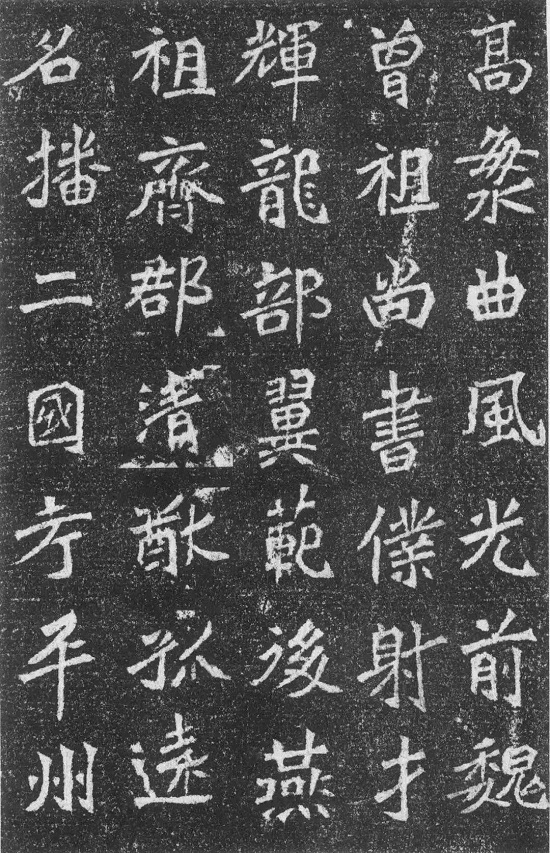 高縏曲風光前魏
曾祖尚書僕射才
輝龍部翼範後燕
祖齊郡清猷孤遠
名播二國考平州